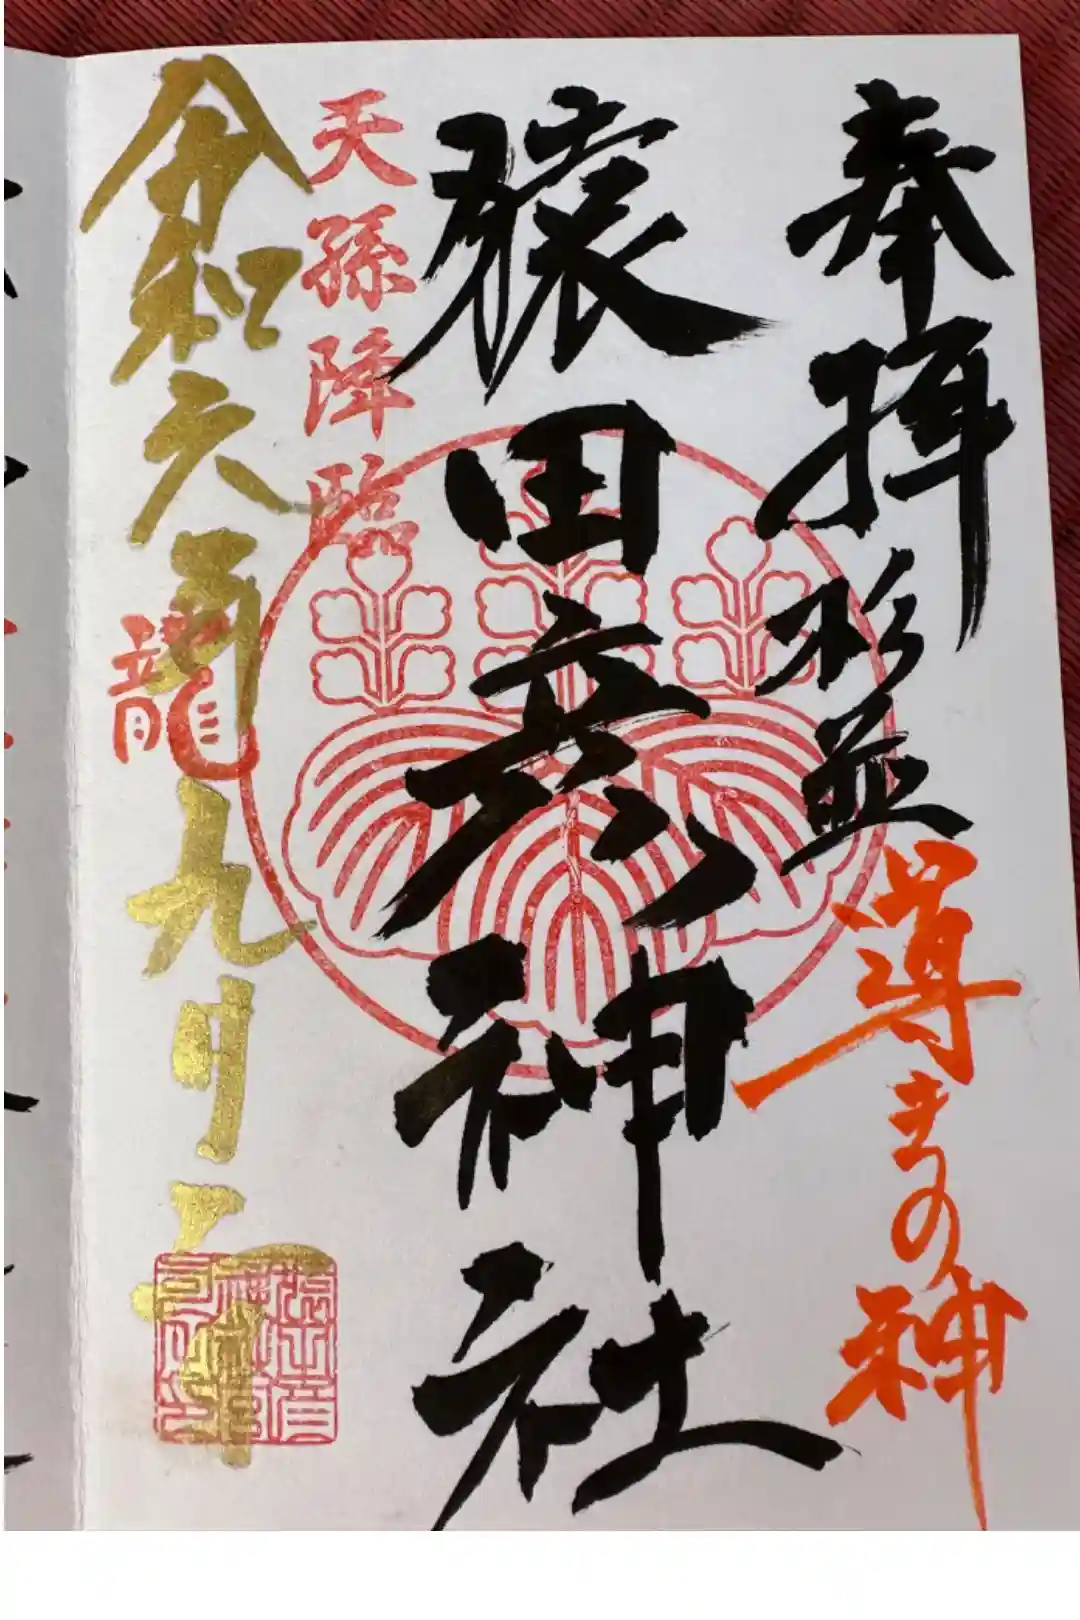 奉拝 杉並
導きの神
猿田彦神社
天孫降臨
令和六年九月
龍